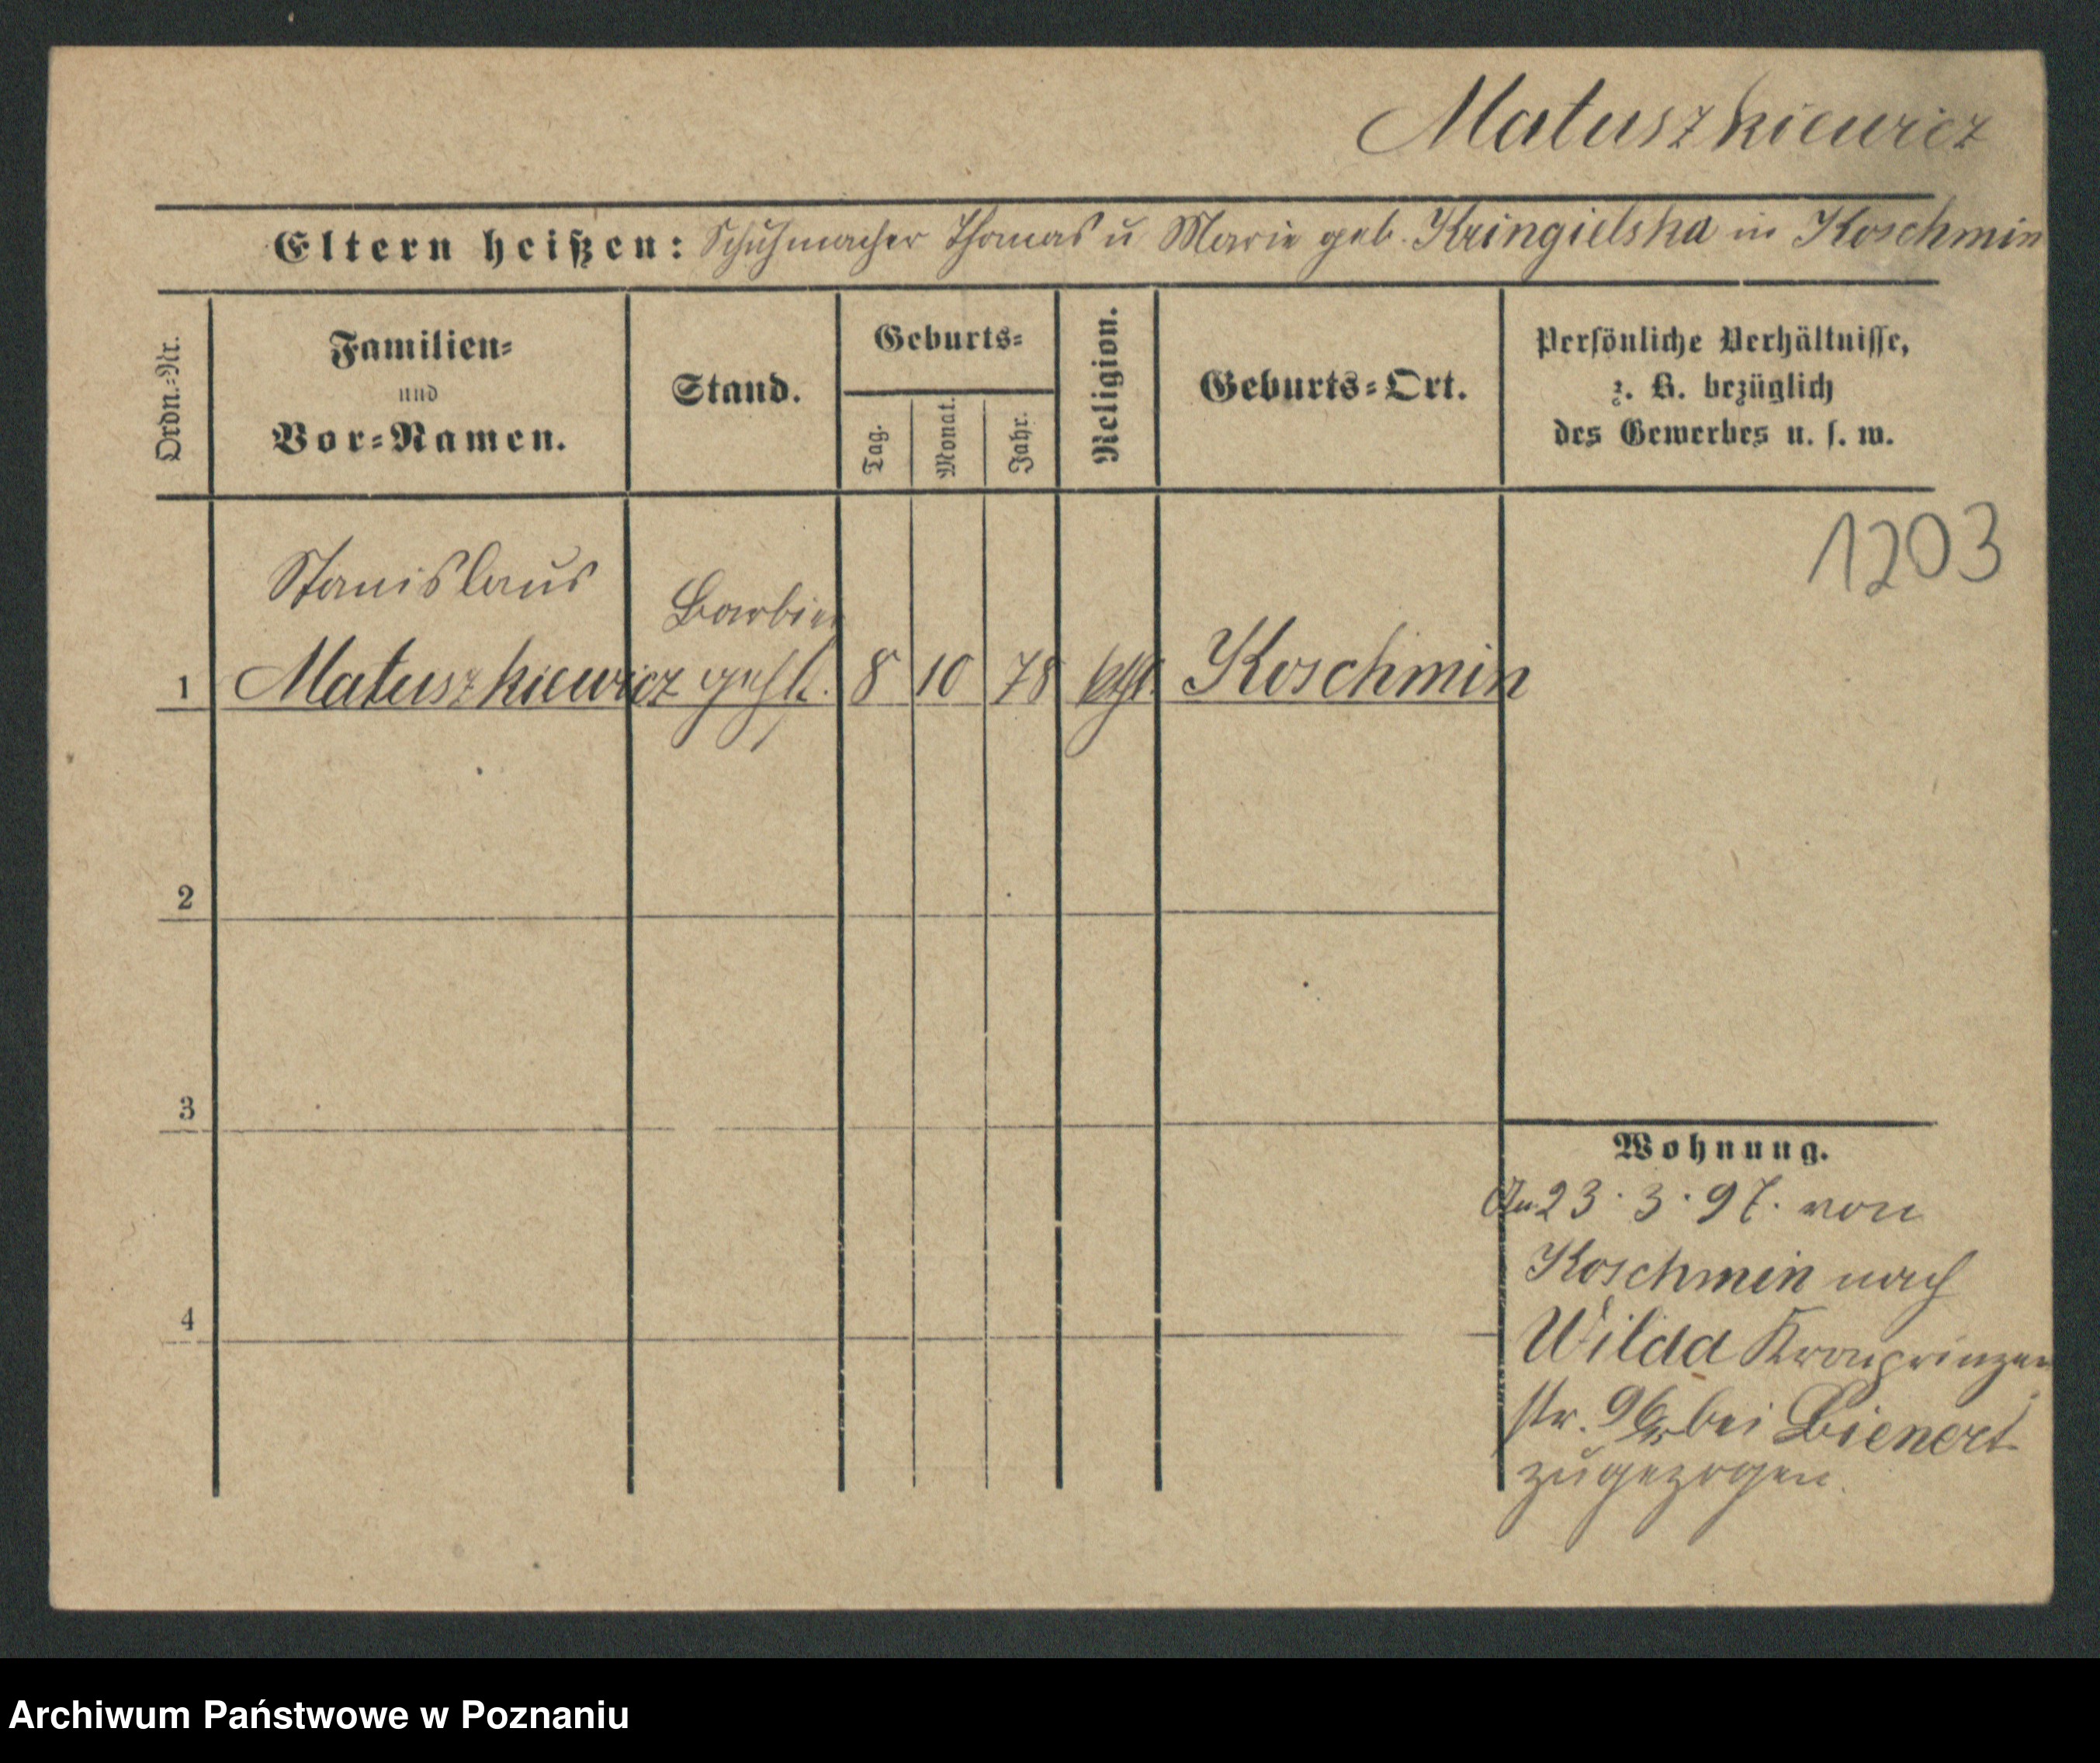 Matuszkiewicz
Eltern heißen: Schuhmacher Thomas u Marie geb. Kringielska in Koschmin
Ordn.-Nr.
Familien-
und
Vor-Namen.
Stand.
Geburts-
Tag.
Monat.
Jahr.
Religion.
Geburts-Ort.
Persönliche Verhältnisse,
z. B. bezüglich
des Gewerbes u. s. w.
1203
Stanislaus
Barbier
1 Matuszkiewicz gehk. 8 10 78 kth. Koschmin
2
3
4
Wohnung.
An 23.3.97. von
Koschmin nach
Wilda Kronprinzen
str. 96 bei Bienert
zugezogen.
Archiwum Państwowe w Poznaniu